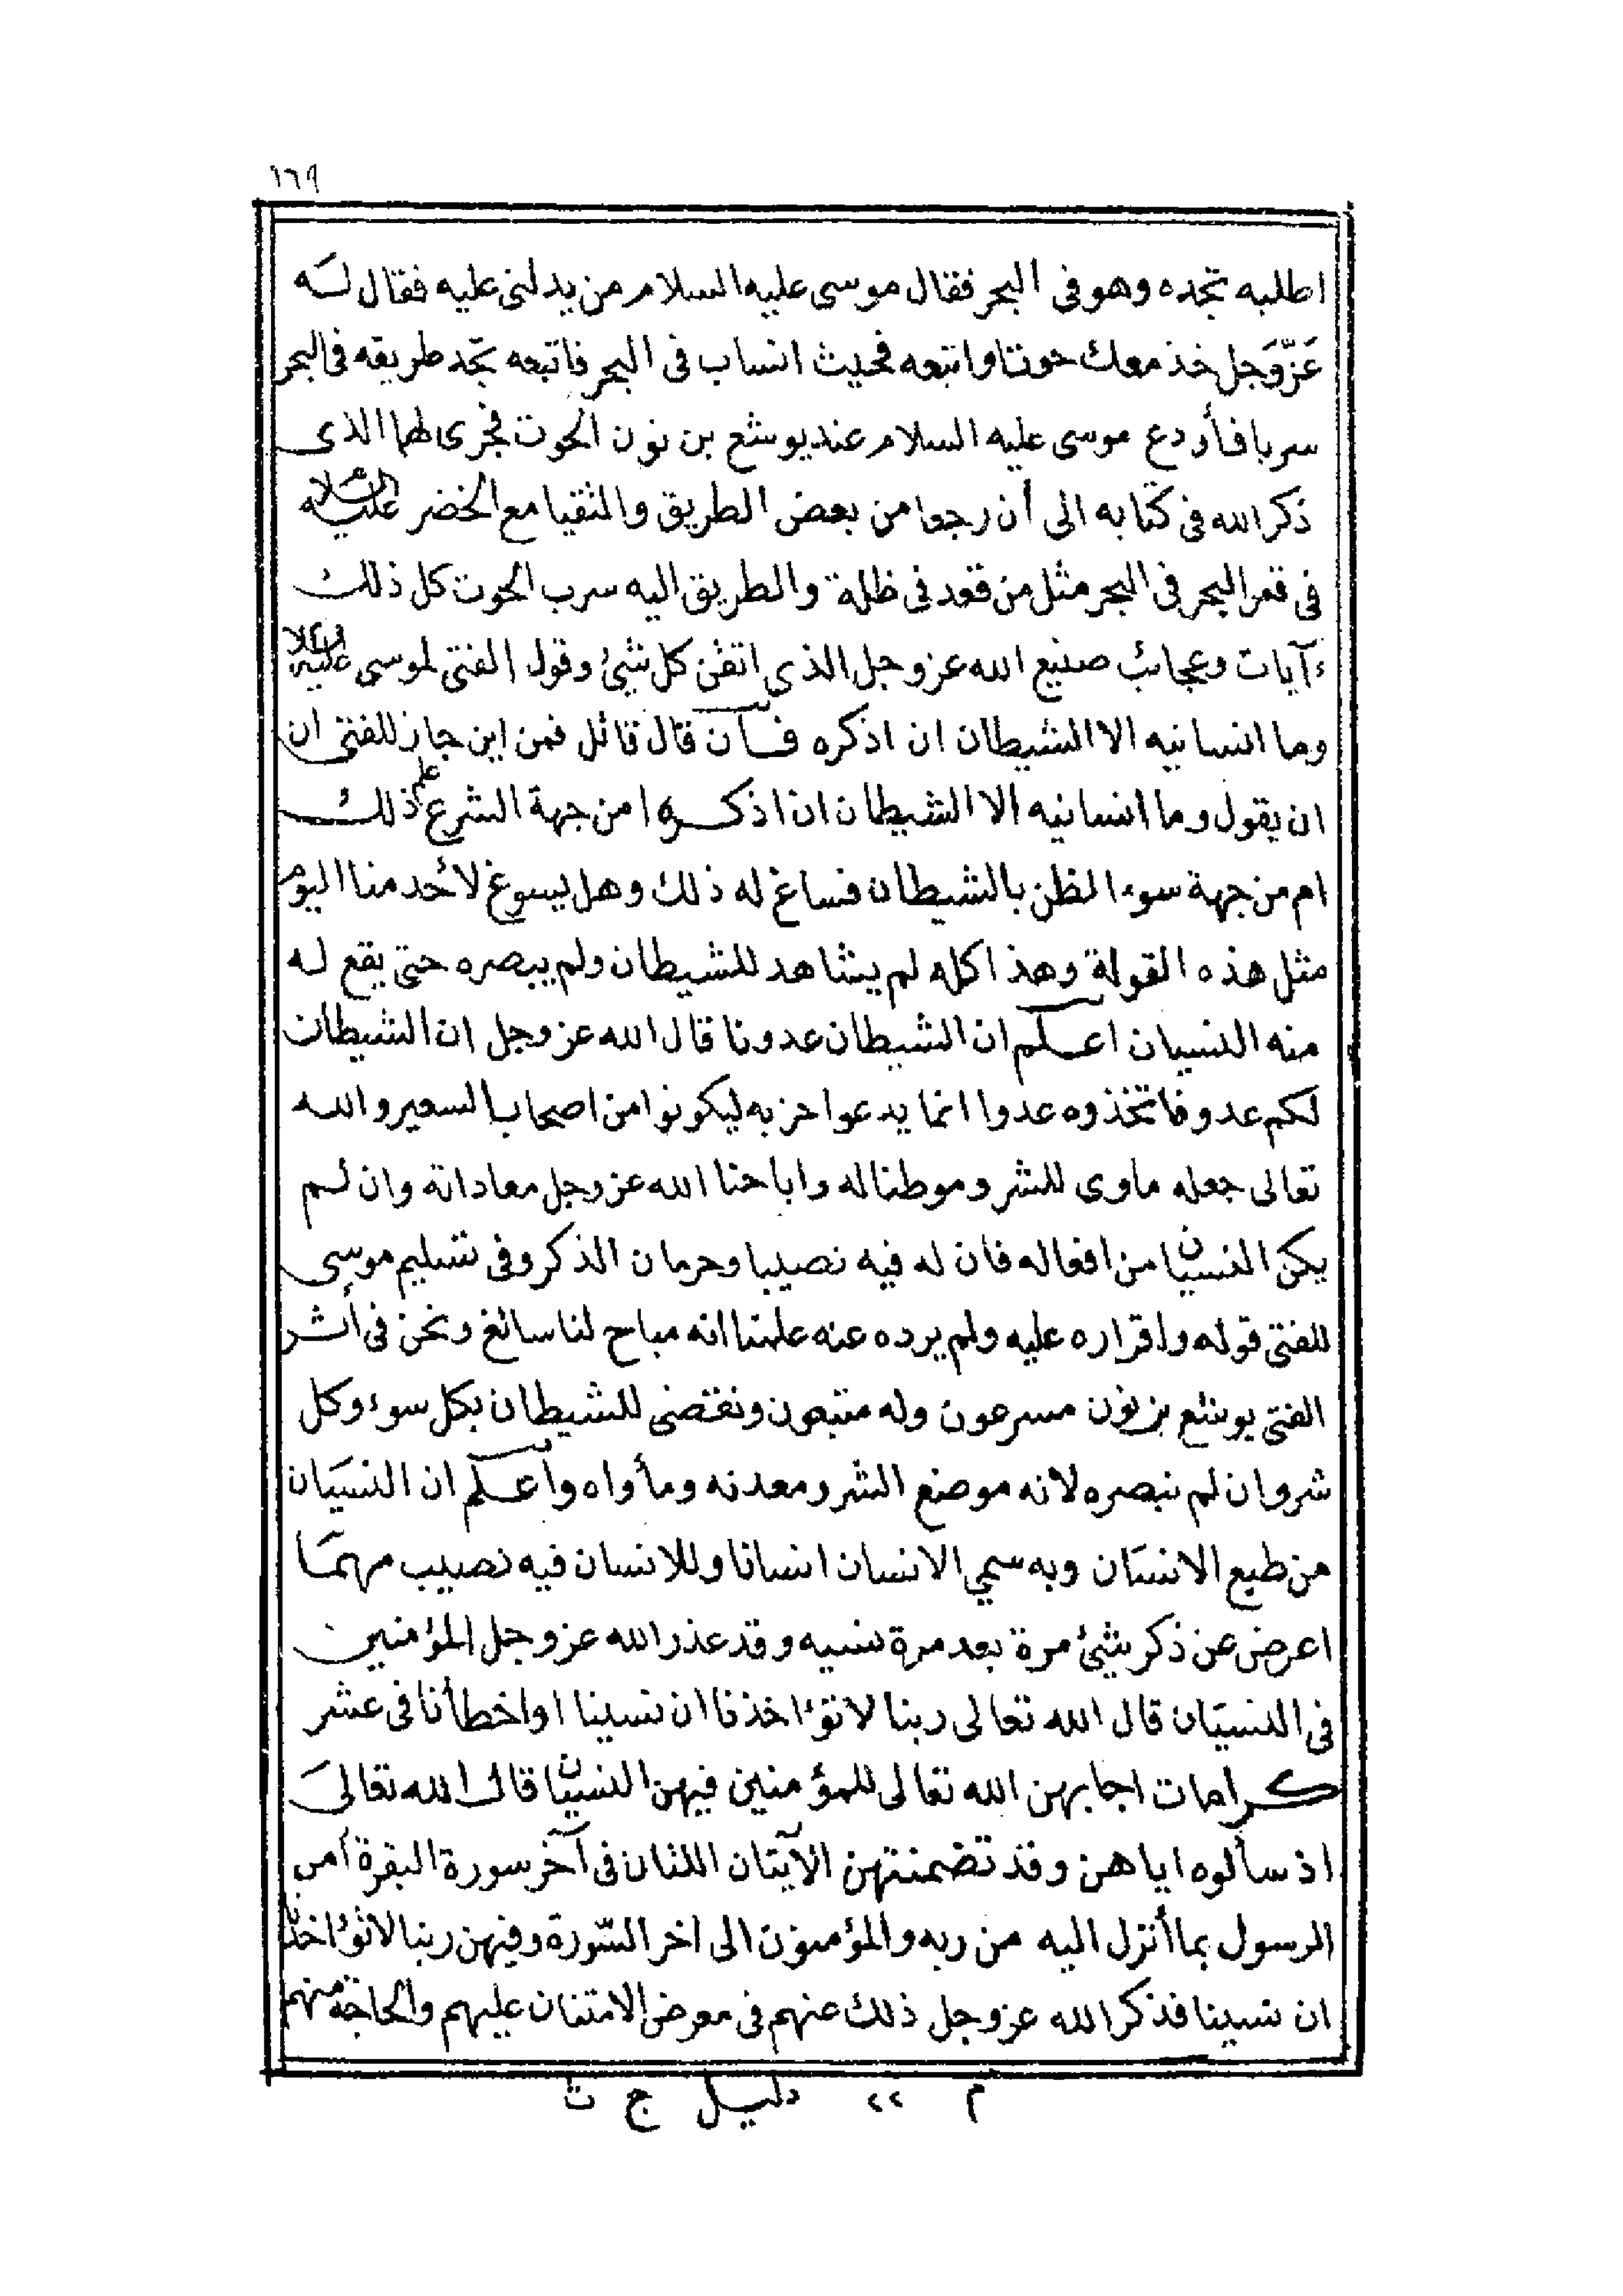 ١٦٩
اطلبه تجده وهو فى البحر فقال موسى عليه السلام من يدلنى عليه فقال له
عَزّ وَجَل خذ معك حوتا واتبعه فحيث انساب فى البحر فاتبعه تجد طريقه فى البحر
سربا فأودع موسى عليه السلام عند يوشع بن نون الحوت فجرى لهما الذى
ذكر الله فى كتابه الى أن رجعا من بعض الطريق والتقيا مع الخضر عليه السلام
فى قعر البحر فى البحر مثل من قعد فى ظلة والطريق اليه سرب الحوت كل ذلك
ءآيات وعجائب صنيع الله عز وجل الذى اتقن كل شىئ وقول الفتى لموسى عليه السلام
وما انسانيه الا الشيطان ان اذكره فــان قال قائل فمن اين جاز للفتى ان
ان يقول وما انسانيه الا الشيطان ان اذكره امن جهة الشرع علم ذلك
ام من جهة سوء الظن بالشيطان فساغ له ذلك وهل يسوغ لأحد منا اليوم
مثل هذه القولة وهذا كله لم يشاهد للشيطان ولم يبصره حتى يقع له
منه النسيان اعــلم ان الشيطان عدونا قال الله عز وجل ان الشيطان
لكم عدو فاتخذوه عدوا انما يدعوا حزبه ليكونوا من اصحاب السعير والله
تعالى جعله ماوى للشر وموطنا له واباحنا الله عز وجل معاداته وان لم
يكن النسيان من افعاله فان له فيه نصيبا وحرمان الذكر وفى تسليم موسى
للفتى قوله واقراره عليه ولم يرده عنه علمنا انه مباح لنا سائغ ونحن فى أثر
الفتى يوشع بن نون مسرعون وله متبعون ونقضى للشيطان بكل سوء وكل
شر وان لم نبصره لانه موضع الشر ومعدنه ومأواه واعــلم ان النسيَان
من طبع الانسَان وبه سمي الانسان انسانا وللانسان فيه نصيب مهمَا
اعرض عن ذكر شيئ مرة بعد مرة نسيه وقد عذر الله عز وجل المؤمنين
فى النسيَان قال الله تعالى ربنا لا تؤاخذنا ان نسينا او اخطأنا فى عشر
كــرامات اجابهن الله تعالى للمؤمنين فيهن النسيان قال الله تعالىَ
اذ سألوه اياهن وقد تضمنتهن الآيتان اللتان فى آخر سورة البقرة أمن
الرسول بما أنزل اليه من ربه والمؤمنون الى اخر السّورة وفيهن ربنا لا تؤاخذنا
ان نسينا فذكر الله عز وجل ذلك عنهم فى معرض الامتنان عليهم والحاجة منهم
م ٢٢ دليل ج ث